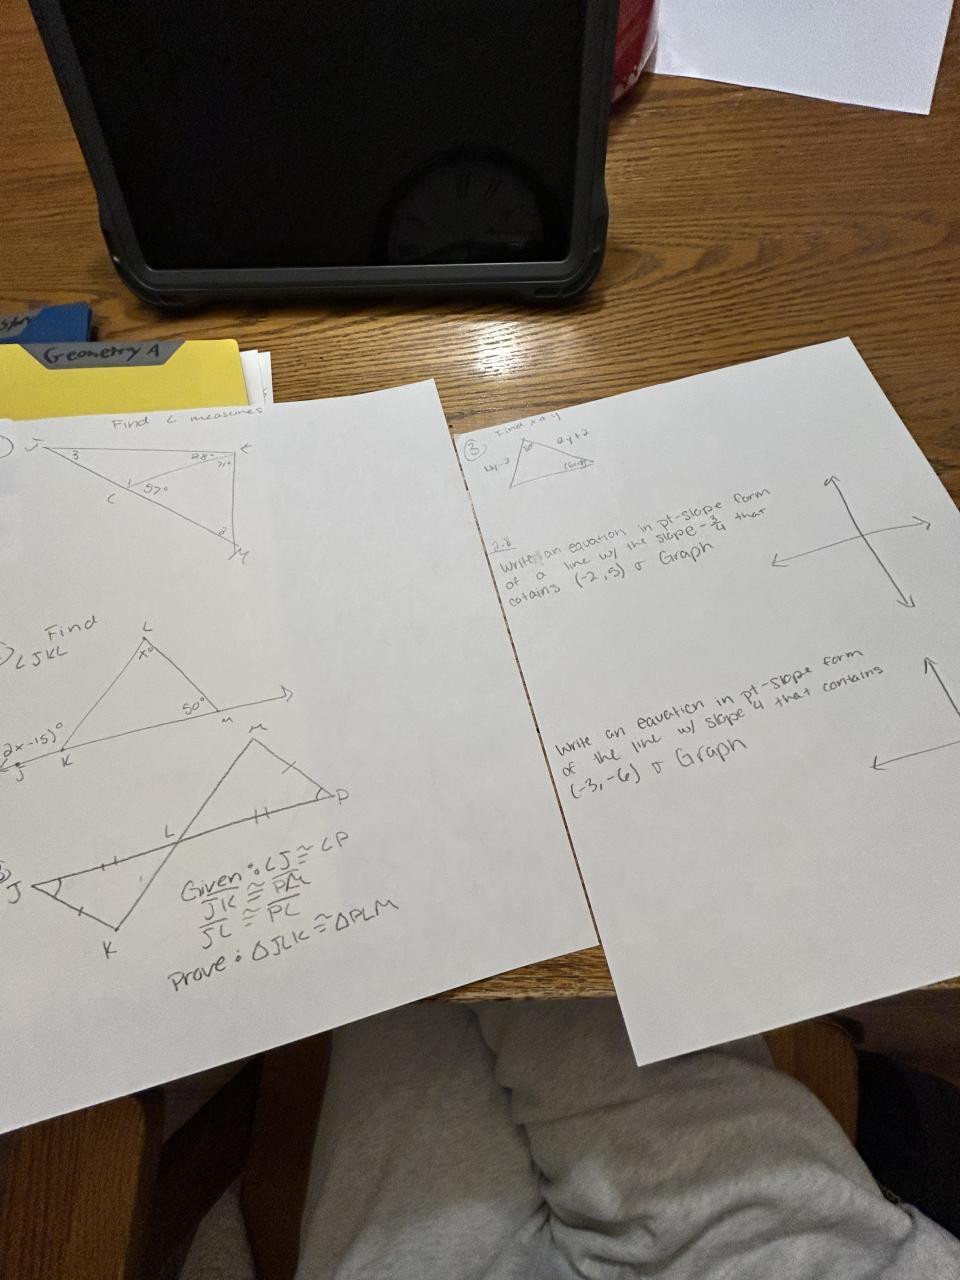 Geometry A
Find ∠ measures
J
3
28°
71°
1
57°
2
M
Find
∠JKL
L
x°
50°
M
2x-15)°
K
J
M
L
P
J
K
Given: ∠J ≅ ∠P
JK ≅ PM
JL ≅ PL
Prove: △JLK ≅ △PLM
3 Find x & y
2y+2
2.8
Write an equation in pt-slope form
of a line w/ the slope -3/4 that
cotains (-2,5) & Graph
Write an equation in pt-slope form
of the line w/ slope 4 that contains
(-3,-6) & Graph